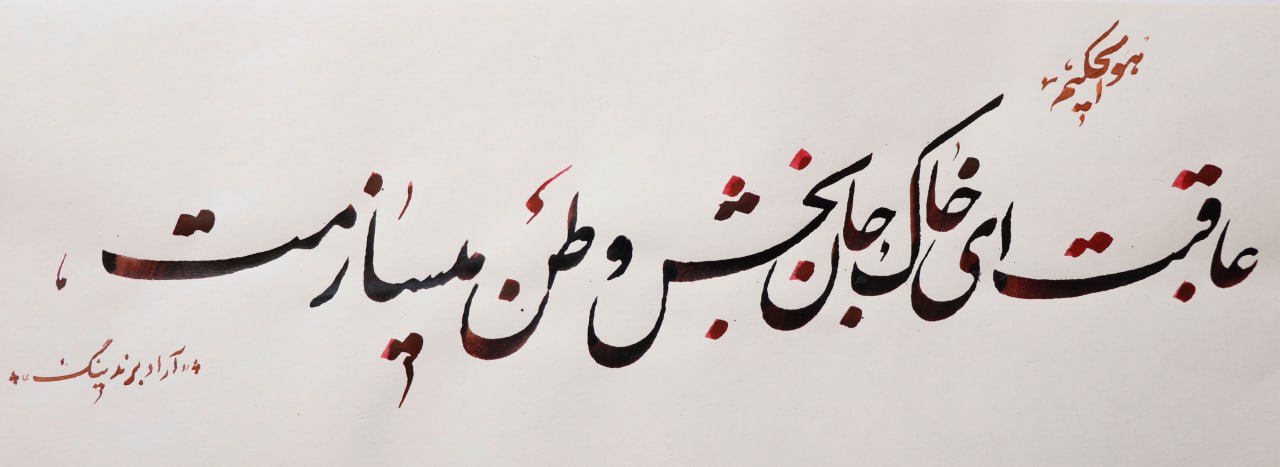 هوالحکیم
عاقبت ای خاک جان بخش وطن میسازمت
«آراد برندینگ»